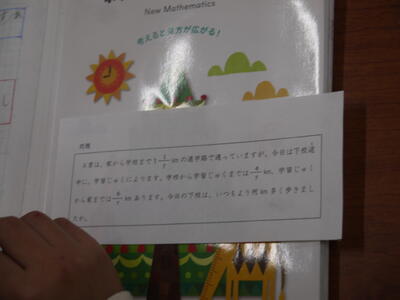 New Mathematics
考えると見方が広がる！
問題
は、家から学校まで1 1/7 kmの通学路で通っていますが、今日は下校途
中に、学習じゅくによります。学校から学習じゅくまでは 4/7 km、学習じゅく
から家までは 6/7 kmあります。今日の下校は、いつもより何km多く歩きまし
たか。